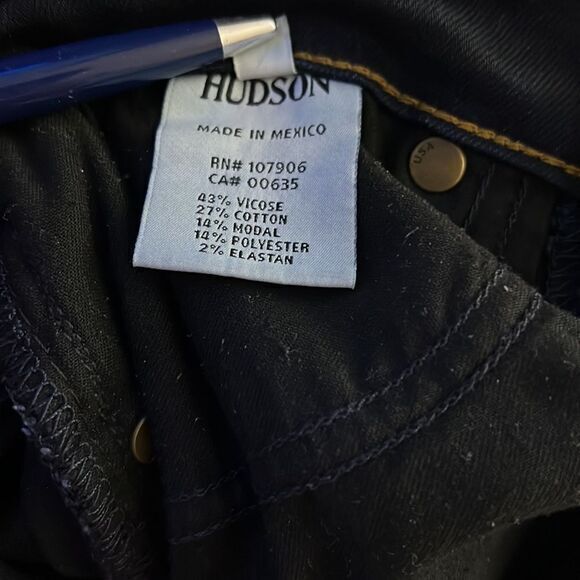 HUDSON
MADE IN MEXICO
RN# 107906
CA# 00635
43% VICOSE
27% COTTON
14% MODAL
14% POLYESTER
2% ELASTAN
USA